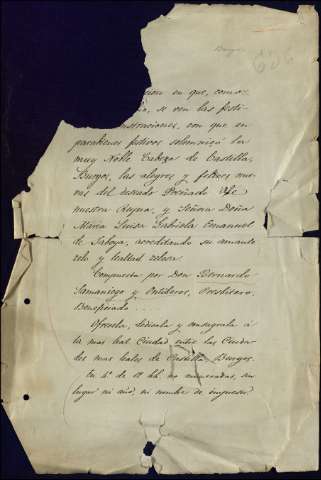 Burgos
sion en que, como
se ven las festi-
instrucciones, con que en
parabienes festivos solemnizó la
muy Noble Cabeza de Castilla,
Burgos, las alegres y felices nue-
vas del
nuestra Reyna, y Señora Doña
Maria Luisa Gabriela Emanuel
de Saboya, acreditando su amante
zelo y lealtad zelosa.
Compuesta por Don Bernardo
Samaniego y Ontiberos, Presbitero
Beneficiado ....
Ofrecela, dedicala y consagrala á
la mas leal Ciudad entre las Ciuda-
des mas leales de Castilla, Burgos.
En 4º de 18 hh. no numeradas, sin
lugar ni año, ni nombre de impresor.